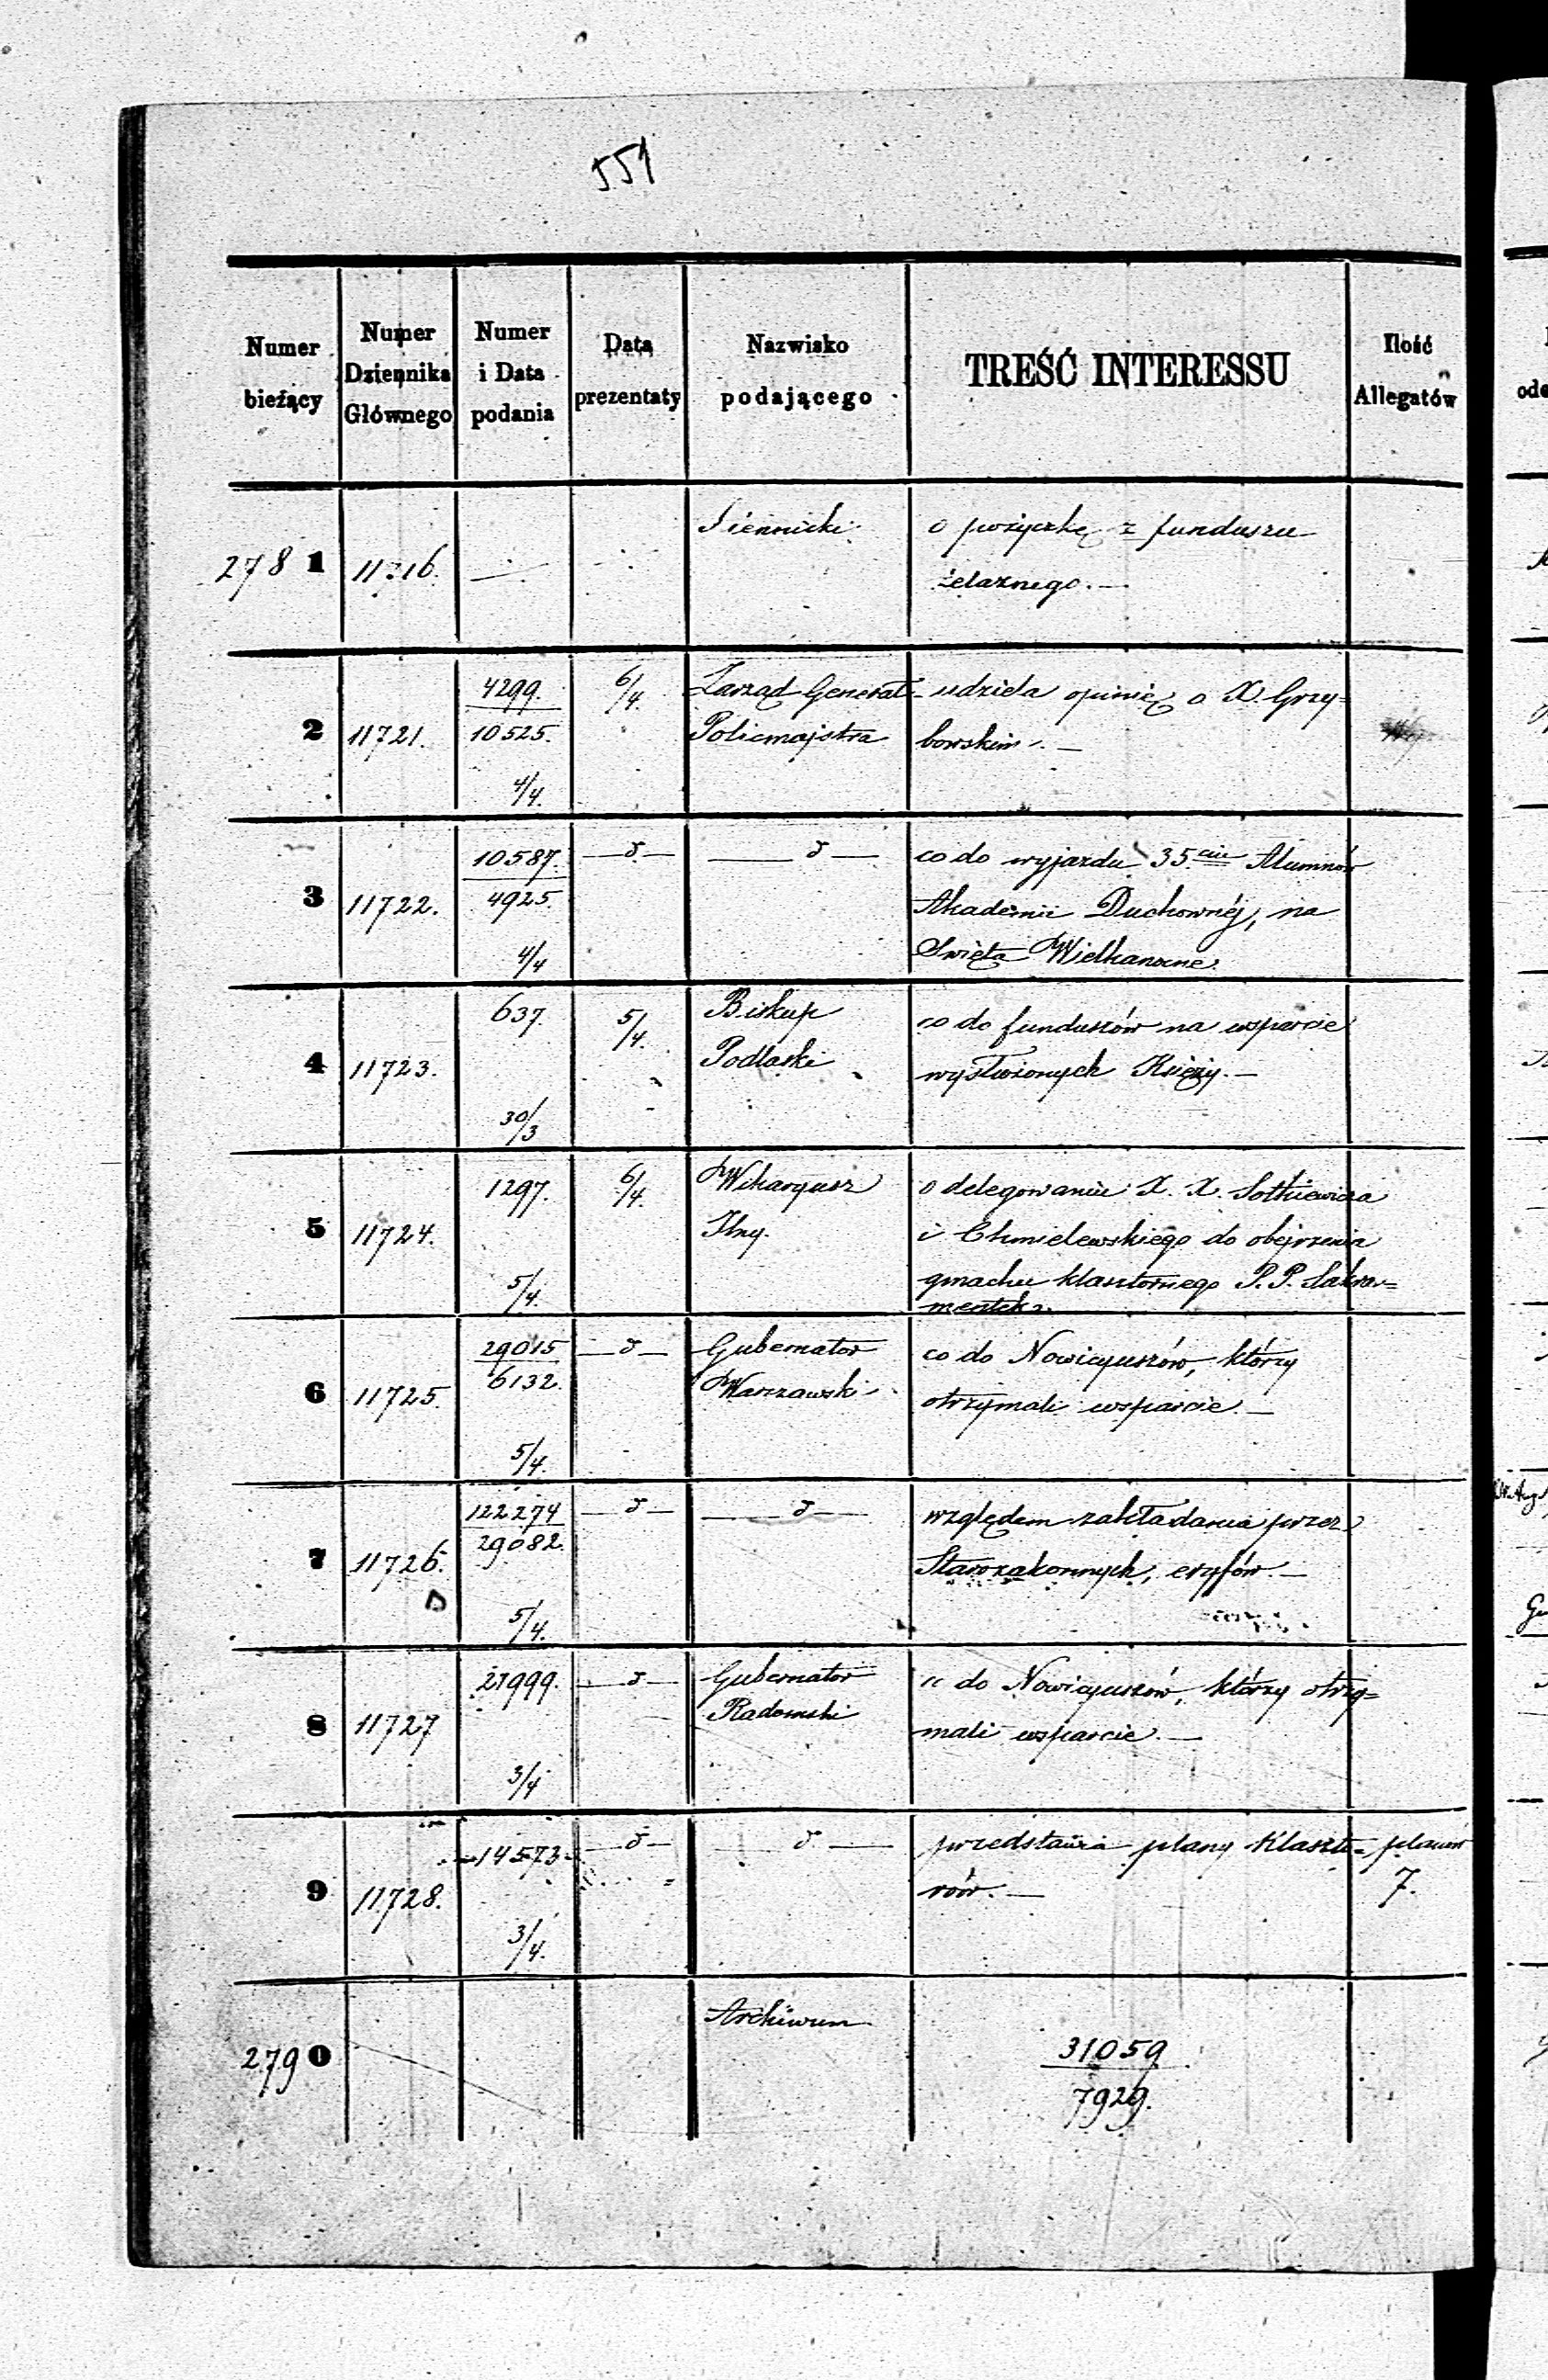 551
Numer bieżący
Numer Dziennika Głównego
Numer i Data podania
Data prezentaty
Nazwisko podającego
TREŚĆ INTERESSU
Ilość Allegatów
2781 11716. Siennicki o pożyczkę z funduszu
żelaznego. —
2 11721. 4299. 10525. 4/4. 6/4. Zarząd Generał udziela opinię o X. Grzy=
Policmajstra bowskim. —
3 11722. 10587. 4925. 4/4 — d — — d — co do wyjazdu 35ciu Alumnów
Akademii Duchownéj, na
Swięta Wielkanocne.
4 11723. 637. 30/3 5/4. Biskup co do funduszów na wsparcie
Podlaski wysłużonych Księży. —
5 11724. 1297. 5/4. 6/4. Wikaryusz o delegowaniu X. X. Sotkiewicza
i Chmielewskiego do obejrzenia
gmachu klasztornego P. P. Sakra=
mentek.
6 11725. 29015 6132. 5/4. — d — Gubernator co do Nowicyuszów, którzy
Warszawski otrzymali wsparcie. —
7 11726. 122274 29082. 5/4. — d — — d — względem zakładania przez
Starozakonnych, eryfów. —
8 11727 21999. 3/4 — d — Gubernator co do Nowicyuszów, którzy otrzy=
Radomski mali wsparcie. —
9 11728. 14573 3/4. — d — — d — przedstawia plany Klaszto= planów
rów. — 7.
2790 Archiwum 31059
7929.